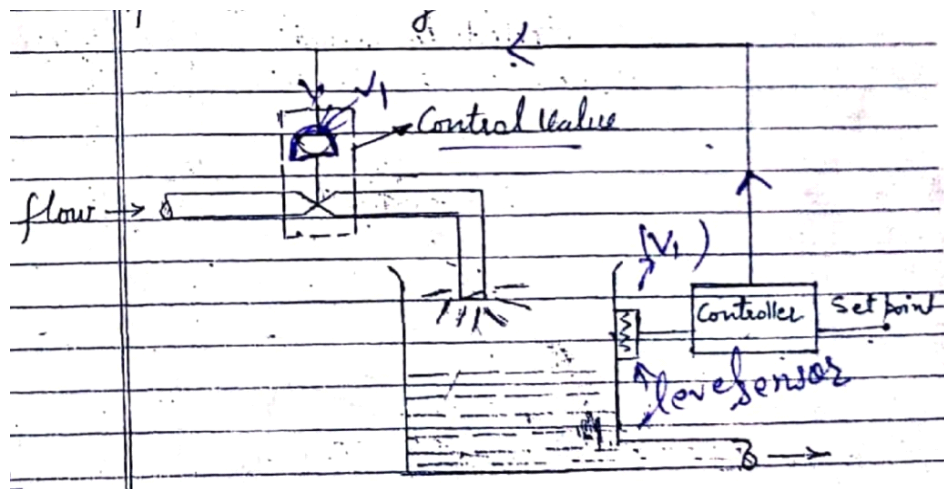 V1
Control Value
flow
(V1)
Controller
Set point
level sensor